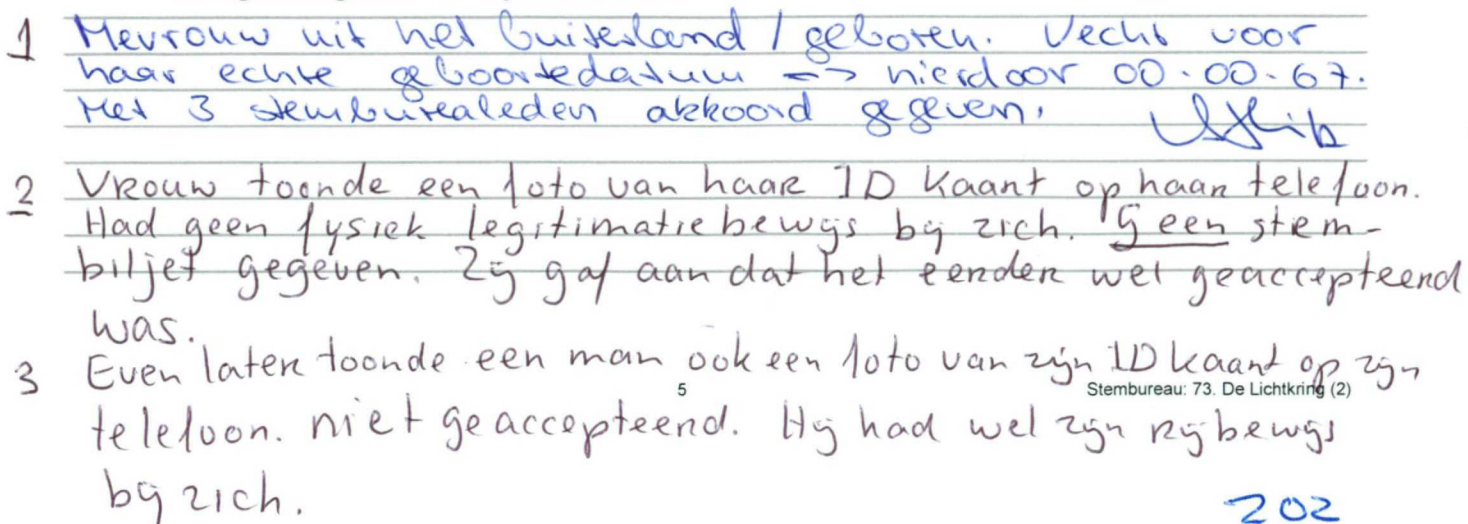 1 Mevrouw uit het buitenland / geboren. Vecht voor
haar echte geboortedatum --> hierdoor 00.00.67.
Met 3 stembureauleden akkoord gegeven.
2 Vrouw toonde een foto van haar ID kaart op haar telefoon.
Had geen fysiek legitimatiebewijs bij zich. Geen stem-
biljet gegeven. Zij gaf aan dat het eerder wel geaccepteerd
was.
3 Even later toonde een man ook een foto van zijn ID kaart op zijn
5 Stembureau: 73. De Lichtkring (2)
telefoon. niet geaccepteerd. Hij had wel zijn rijbewijs
bij zich.
202